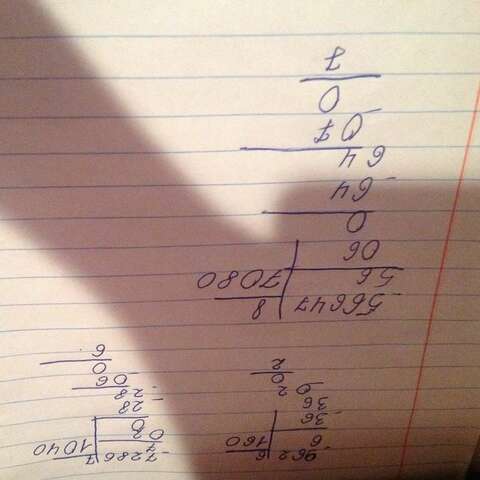 -962 6
6 160
-36
36
-02
0
2
-7286 7
7 1040
02
0
-28
28
-06
0
6
-56647 8
56 7080
06
0
-64
64
-07
0
7